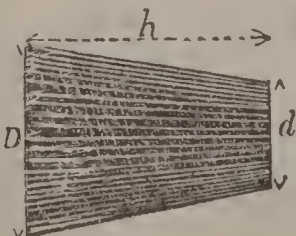 h
D
d